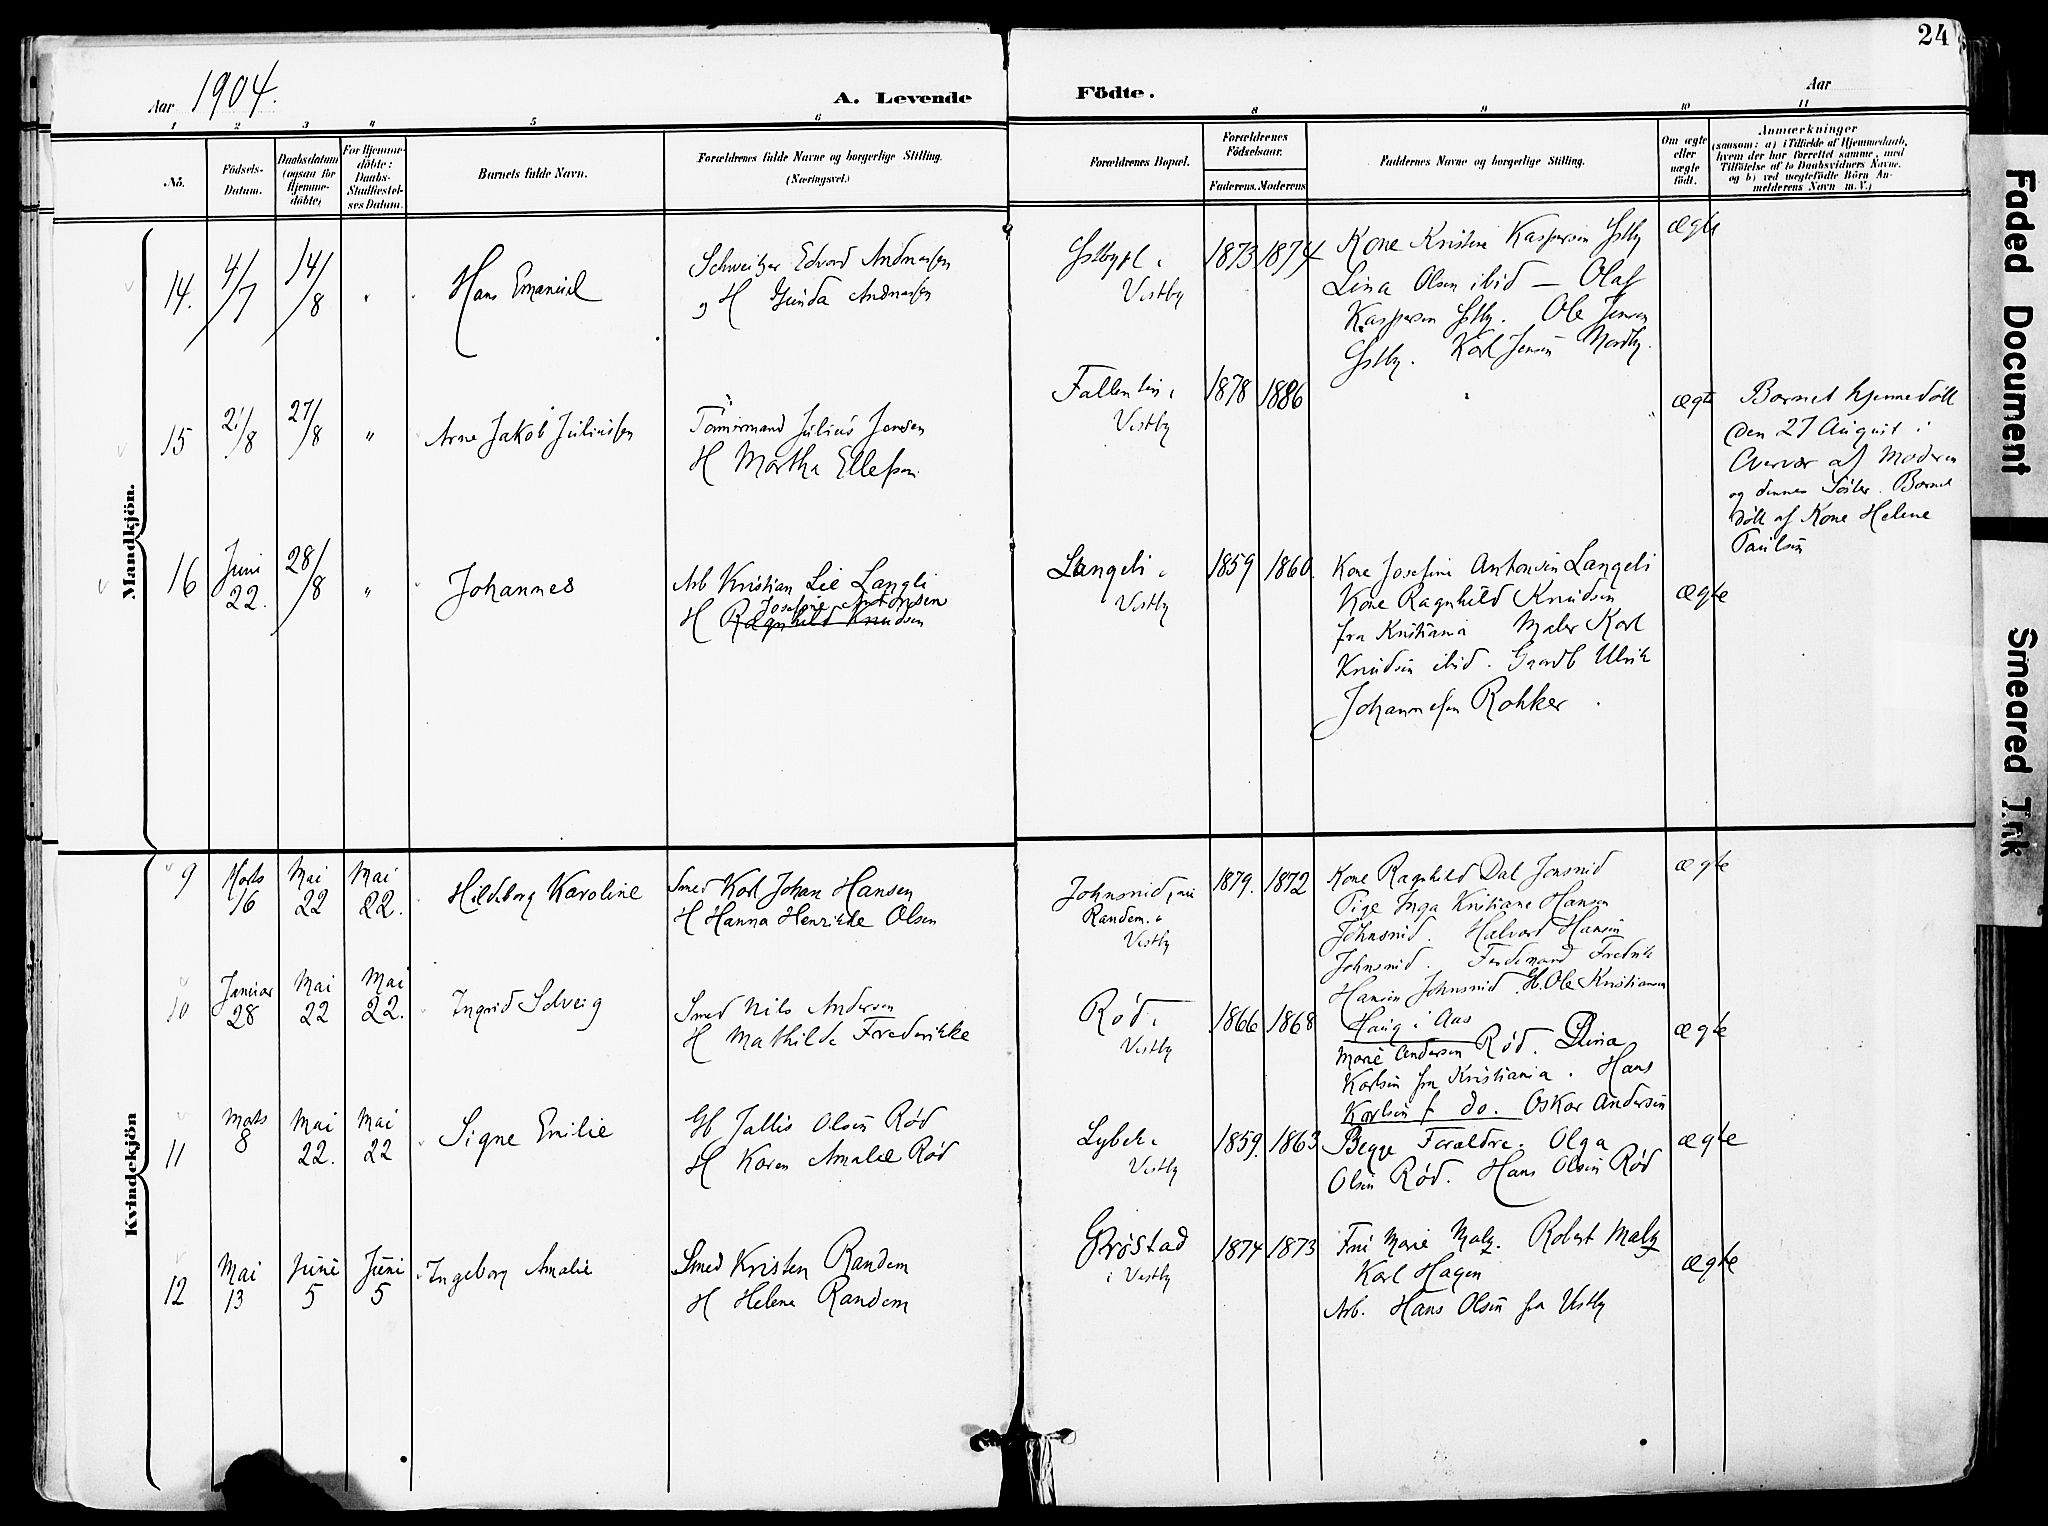 24
Aar 1904.
A. Levende Födte.
Aar
1 2 3 4 5 6 8 9 10 11
Nö.
Födsels-
Datum.
Daabsdatum
(ogsaa för
Hjemme-
döbte)
For Hjemme-
döbte:
Daabs-
Stadfæstel-
ses Datum.
Barnets fulde Navn.
Forældrenes fulde Navne og borgerlige Stilling.
(Næringsvei.)
Forældrenes Bopæl.
Forældrenes
Födselsaar.
Faderens. Moderens
Faddernes Navne og borgerlige Stilling.
Om ægte
eller
uægte
født.
Anmærkninger
(saasom: a) i Tilfælde af Hjemmedaab,
hvem der har forrettet samme, med
Tilföielse af to Daabsvidners Navne.
og b) ved uægtefödte Börn An-
melderens Navn m. V.)
Mandkjön.
14. 4/7 14/8 "
Hans Emanuel
Schweitzer Edvard Andreassen
og H Gunda Andreassen
Vestby
1873 1874
Kone Kristine Kaspersen
Lina Olsen ibid — Olaf
Kaspersen Ole Jensen
Karl Jensen Nordby.
ægte
15 21/8 27/8 "
Arne Jakob Juliussen
Tömmermand Julius Jensen
H Martha Ellefsen
Fallentin i
Vestby
1878 1886
ægte
Barnet hjemmedöbt
den 27 August i
Overvær af Moderen
og dennes Söster. Barnet
döbt af Kone Helene
Paulsen
16 Juni 22. 28/8 "
Johannes
Arb Kristian Lie Langli
Josefine Antonsen
H Ragnhild Knudsen
Langeli i
Vestby
1859 1860
Kone Josefine Antonsen Langeli
Kone Ragnhild Knudsen
fra Kristiania Maler Karl
Knudsen ibid. Gaardb Ulrik
Johannessen Rokker.
ægte
Kvindekjön
9 Marts 16 Mai 22 Mai 22.
Hildborg Karoline
Smed Karl Johan Hansen
H Hanna Henrikke Olsen
Randem i
Vestby
1879. 1872
Kone Ragnhild Dal
Pige Inga Kristiane Hansen
Halvard Hansen
Ferdinand Fredrik
Hansen G. Ole Kristiansen
Haug i Aas
ægte
10 Januar 28 Mai 22 Mai 22.
Ingrid Solveig
Smed Nils Andersen
H Mathilde Frederikke
Röd i
Vestby
1866 1868
Marie Andersen Röd. Lina
Karlsen fra Kristiania. Hans
Karlsen f do. Oskar Andersen
ægte
11 Marts 8 Mai 22. Mai 22
Signe Emilie
Gb Jallis Olsen Rød
H Karen Amalie Rød
Lybek i
Vestby
1859. 1863
Begge Forældre. Olga
Olsen Rød. Hans Olsen Rød
ægte
12 Mai 13 Juni 5 Juni 5
Ingeborg Amalie
Smed Kristen Randem
H Helene Randem
Grøstad
i Vestby
1874 1873
Fru Marie Malz. Robert Malz
Karl Hagen
Arb. Hans Olsen fra Vestby
ægte
Faded Document
Smeared Ink